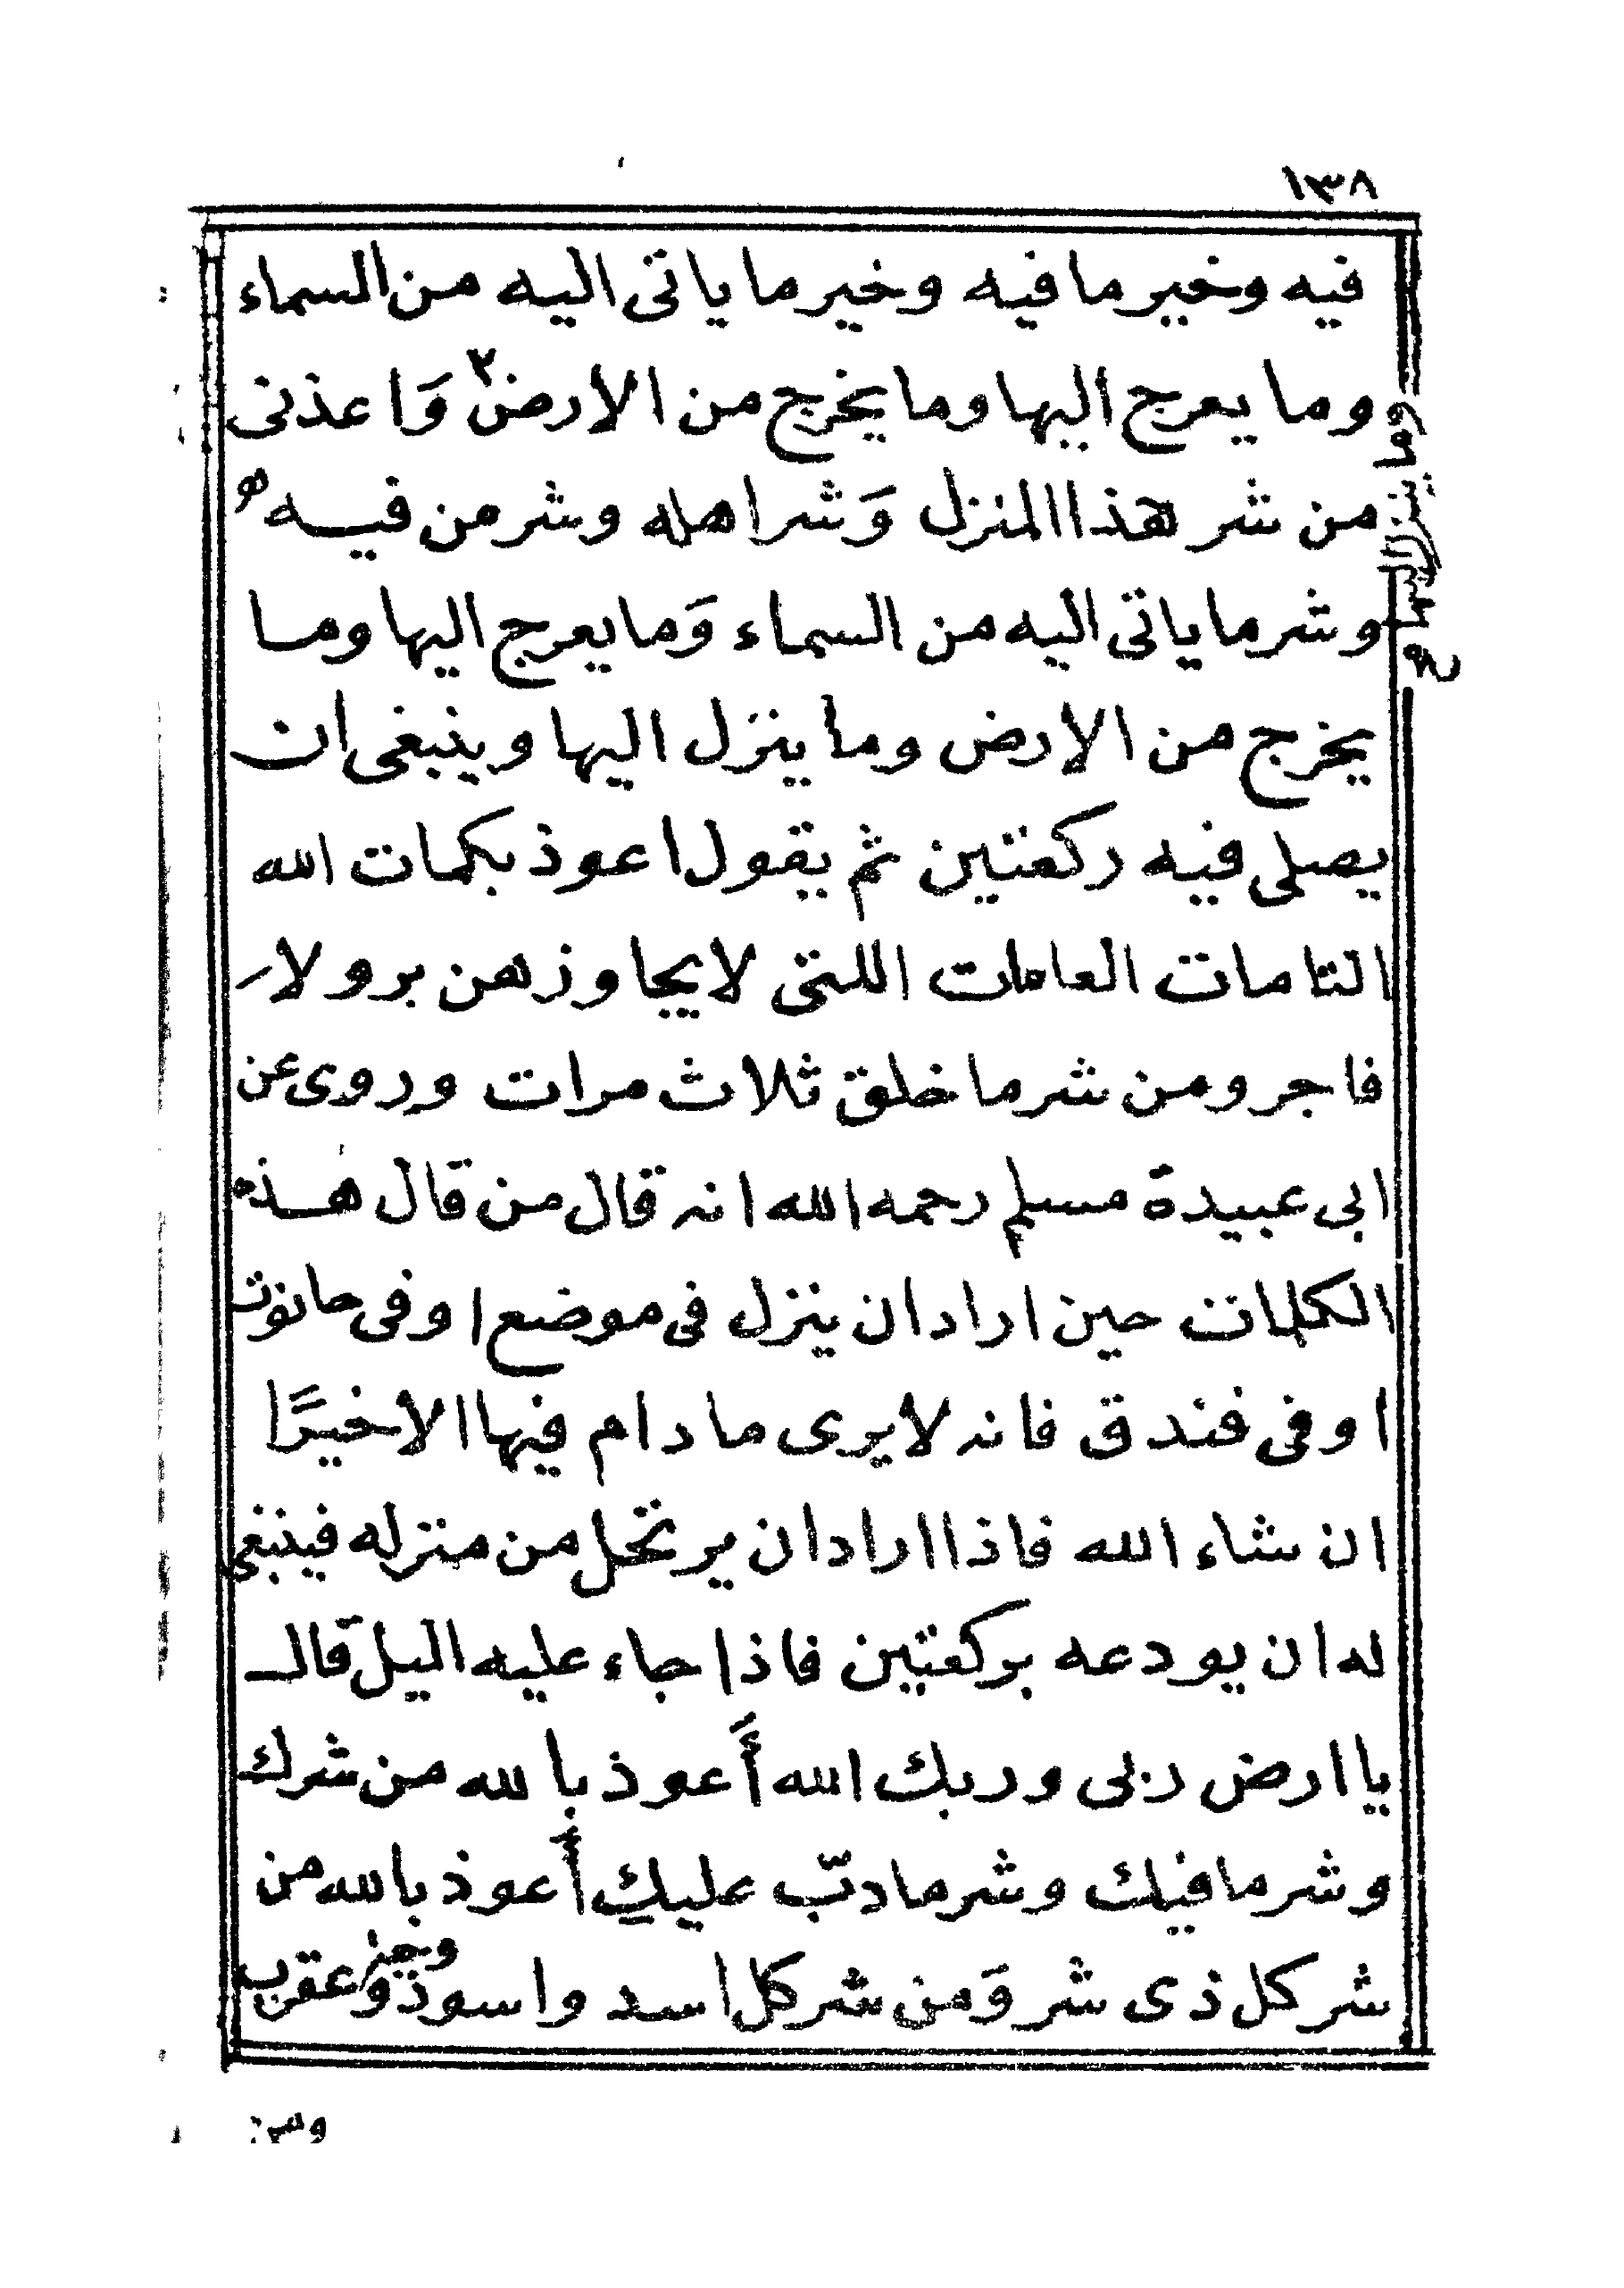 ١٣٨
فيه وخير ما فيه وخير ما ياتى اليه من السماء
وما يعرج اليها وما يخرج من الارض ٢ وَاعذنى
من شر هذا المنزل وَشر اهله وشر من فيه
وشر ما ياتى اليه من السماء وَما يعرج اليها وما
يخرج من الارض وما ينزل اليها وينبغى ان
يصلى فيه ركعتين ثم يقول اعوذ بكمات الله
التامات العامات اللتى لا يجاوزهن بر ولا
فاجر ومن شر ما خلق ثلاث مرات وروى عن
ابى عبيدة مسلم رحمه الله انه قال من قال هذه
الكلمات حين اراد ان ينزل فى موضع او فى حانوت
او فى فندق فانه لا يرى ما دام فيها الا خيرًا
ان شاء الله فاذا اراد ان يرتحل من منزله فينبغى
له ان يودعه بركعتين فاذا جاء عليه اليل قال
يا ارض ربى وربك الله أَعوذ بالله من شرك
وشر ما فيك وشر ما دبّ عليك أَعوذ بالله من
شر كل ذى شر وَمن شر كل اسد واسود وعقرب